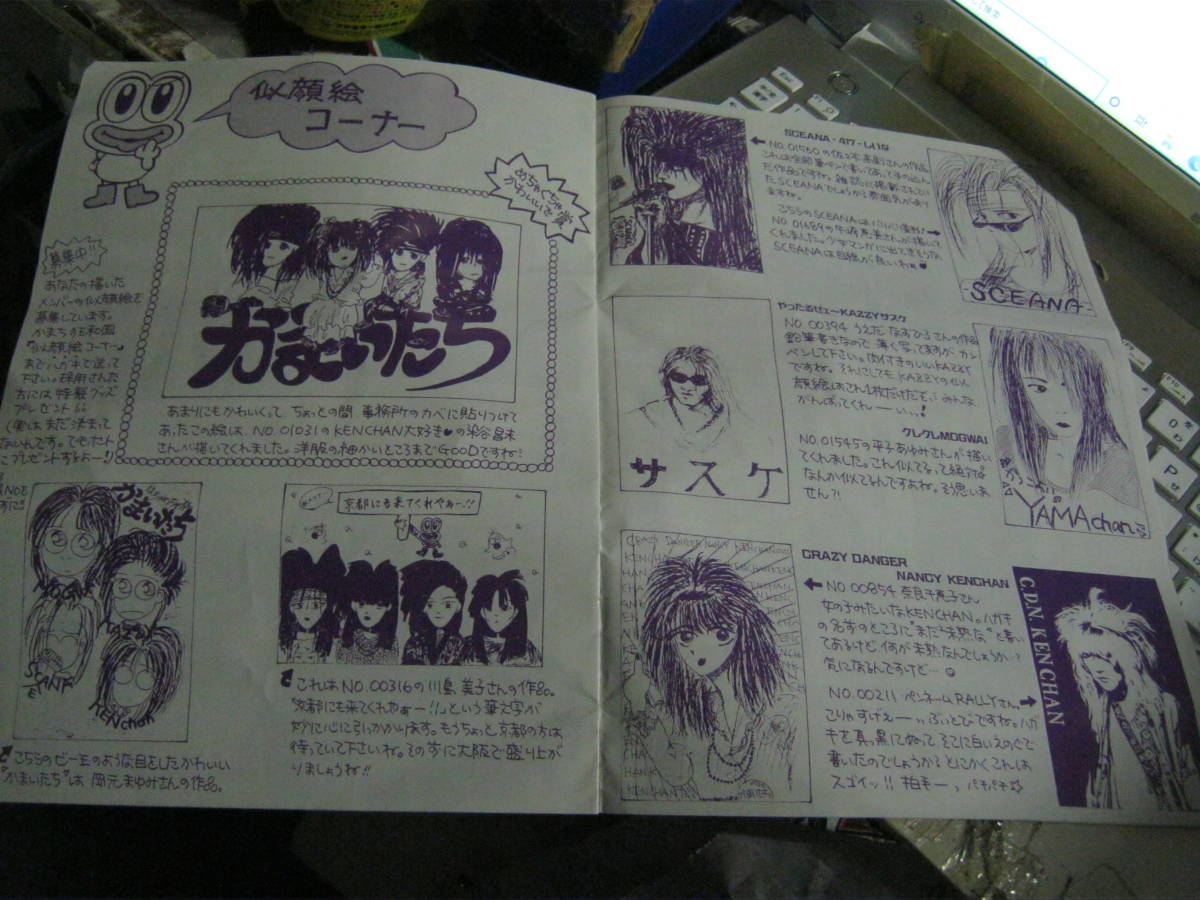 似顔絵
コーナー
めちゃくちゃ
かわいいで賞
募集中!!
あなたの描いた
メンバーの似顔絵を
募集しています。
かまち狂和国
『似顔絵コーナー』
までハガキで送って
下さい。採用された
方には特製グッズ
プレゼント!!
(実はまだ決まって
ないんです。でもホント
にプレゼントするよー!)
かまいたち
あまりにもかわいくって ちょっとの間 事務所のカベに貼りつけて
あったこの絵は、NO.01031のKENCHAN大好き♥の
さんが描いてくれました。洋服の細かいところまでGOODですね!
かまいたち
SCEANA
KENchan
こちらのビー玉のような目をしたかわいい
"かまいたち"は 岡元まゆみさんの作品。
京都にも来てくれやぁー!!
これはNO.00316の川島美子さんの作品。
"京都にも来てくれやぁー!!"という筆文字が
妙に心に引っかかります。もうちょっと京都の方は
待っていて下さいね。その分に大阪で盛り上が
りましょうね!!
SCEANA
NO.01560の佐々木
これは全部筆ペンで書いてあって
た作品ですね。雑誌に掲載されてい
たSCEANAでしょうか?雰囲気があり
ますね。
こちらのSCEANAは
NO.01689の
くれました。少女マンガに出てきそうな
SCEANAは目線が熱いわぁ♥
-SCEANA-
やったるぜェ〜KAZZYサスケ
NO.00394 うえだ なおひろさんの作品
鉛筆書きなので、薄く写ってますが、カン
ベンして下さい。肉付きのいいKAZZY
ですね。それにしてもKAZZYの似
顔絵はこれ1枚だけだぞ!みんな
がんばってくれーいぃ!
サスケ
クレクレMOGWAI
NO.01545の平子あゆみさんが描い
てくれました。これ似てるって絶対!
なんか似てるんですよね。そう思いま
せん?!
YAMAchan
CRAZY DANGER
NANCY KENCHAN
NO.00854 奈良千恵子さん
女の子みたいなKENCHAN。ハガキ
の名すのところに"まだ未熟な"と書い
てあるけど、何が未熟なんでしょうか…?
気になるんですけど…
NO.00211 ペンネームRALLYさん
こりゃすげぇーー、ぶっとびですね。ハガ
キを真っ黒にぬって、そこに白いえのぐで
書いたのでしょうか?とにかくこれは
スゴイッ!! 拍手ー、パチパチ
C.D.N. KENCHAN